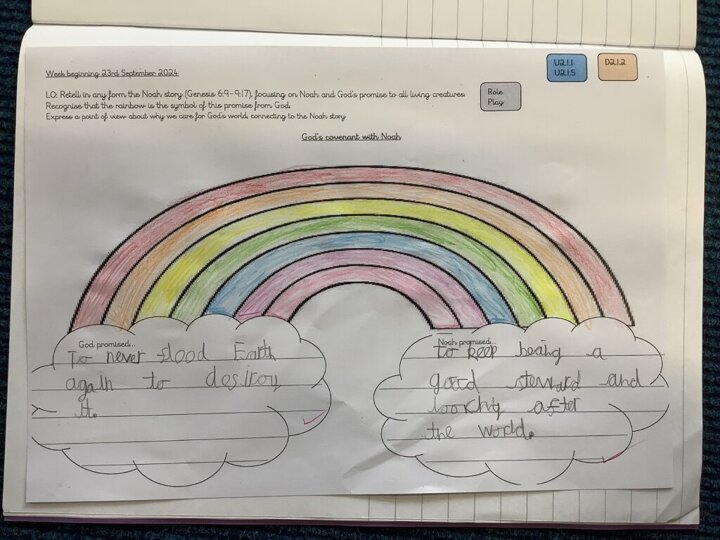 Week beginning 23rd September 2024
U2.1.1
U2.1.5
D2.1.2
LO: Retell in any form the Noah story (Genesis 6:9-9:17), focusing on Noah and God's promise to all living creatures.
Recognise that the rainbow is the symbol of this promise from God.
Express a point of view about why we care for God's world, connecting to the Noah story
Role
Play
God's covenant with Noah
God promised...
To never flood Earth
again to destroy
it.
Noah promised...
To keep being a
good steward and
looking after
the world.